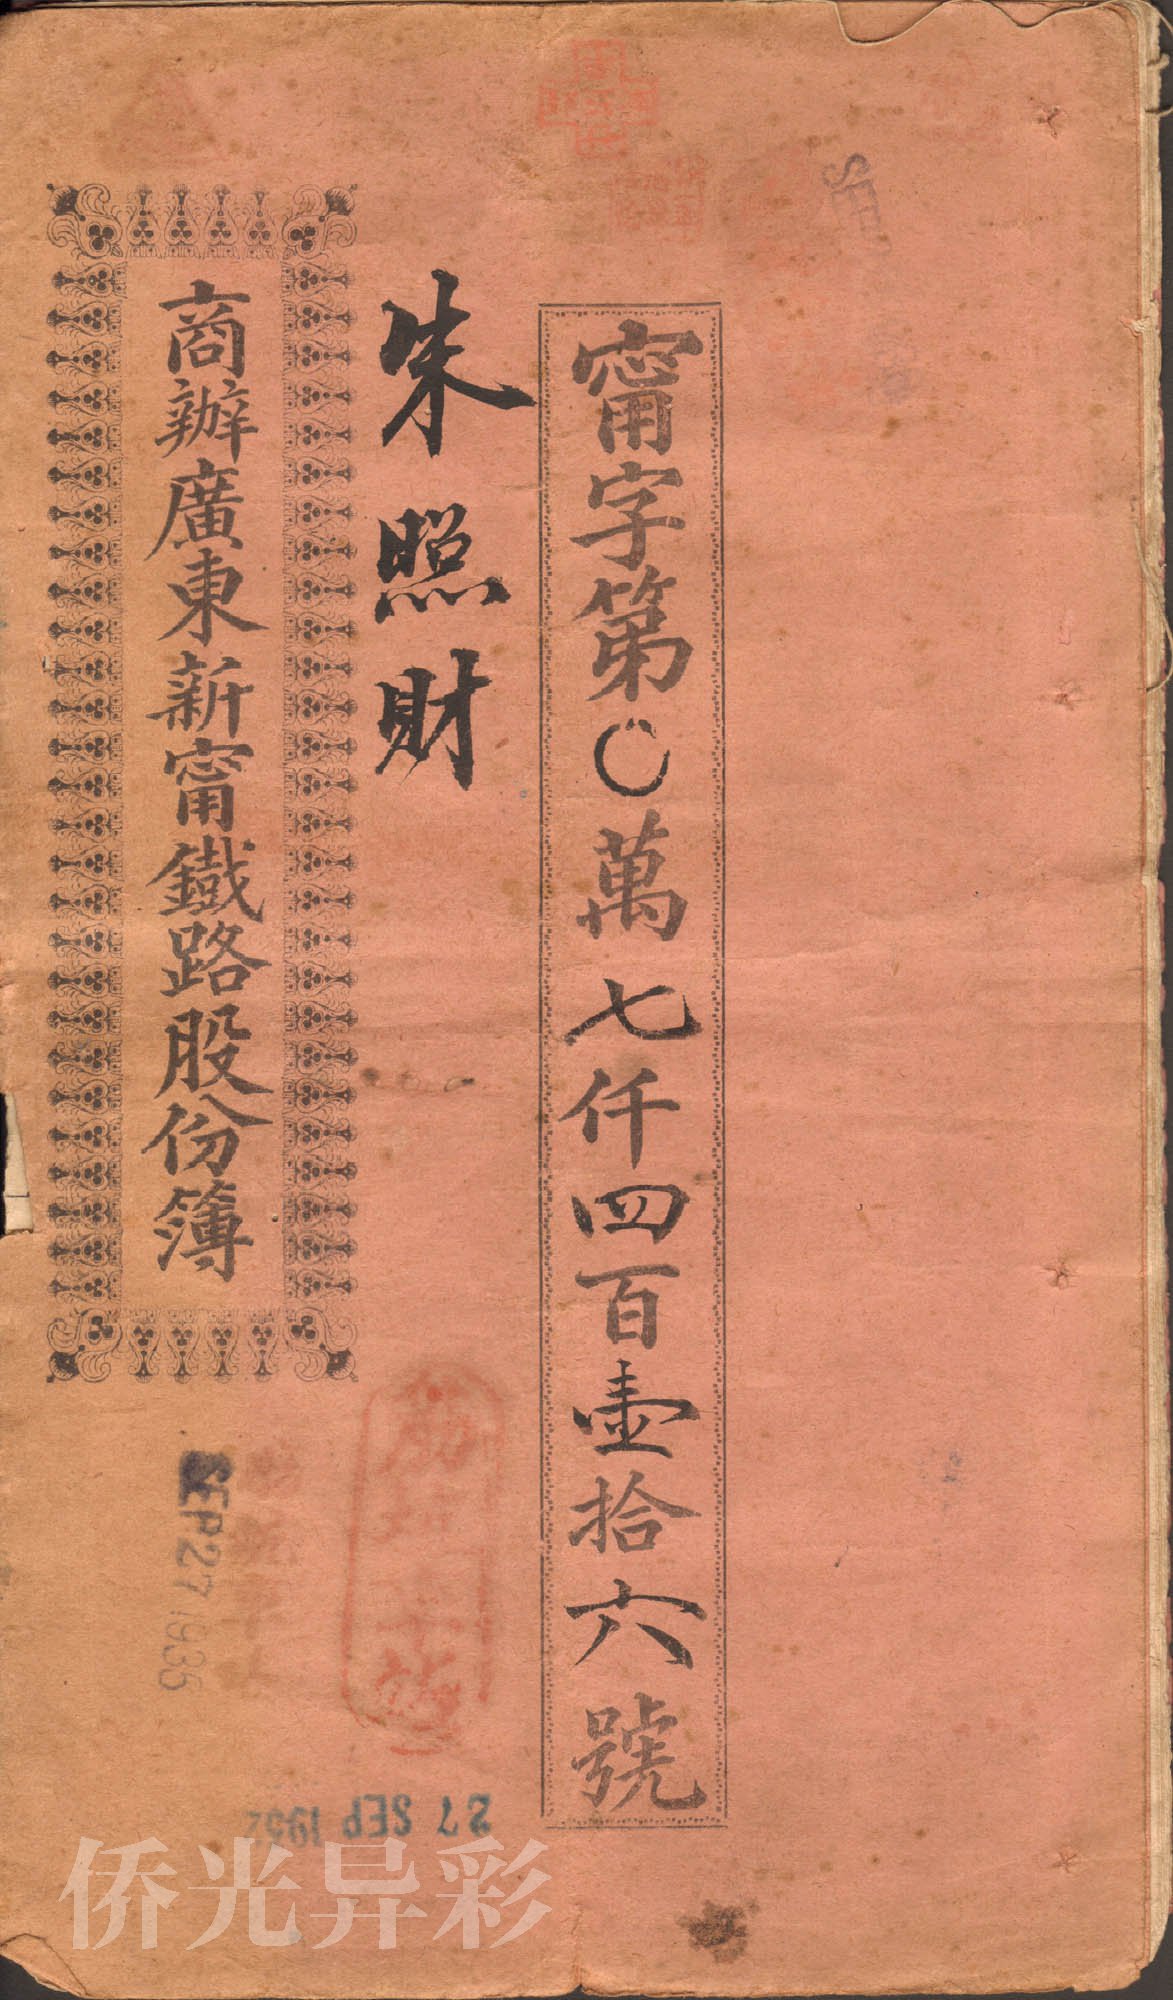 甯字第〇萬七仟四百壹拾六號
朱照財
商辦廣東新甯鐵路股份簿
SEP 27 1935
27 SEP 1932
侨光异彩